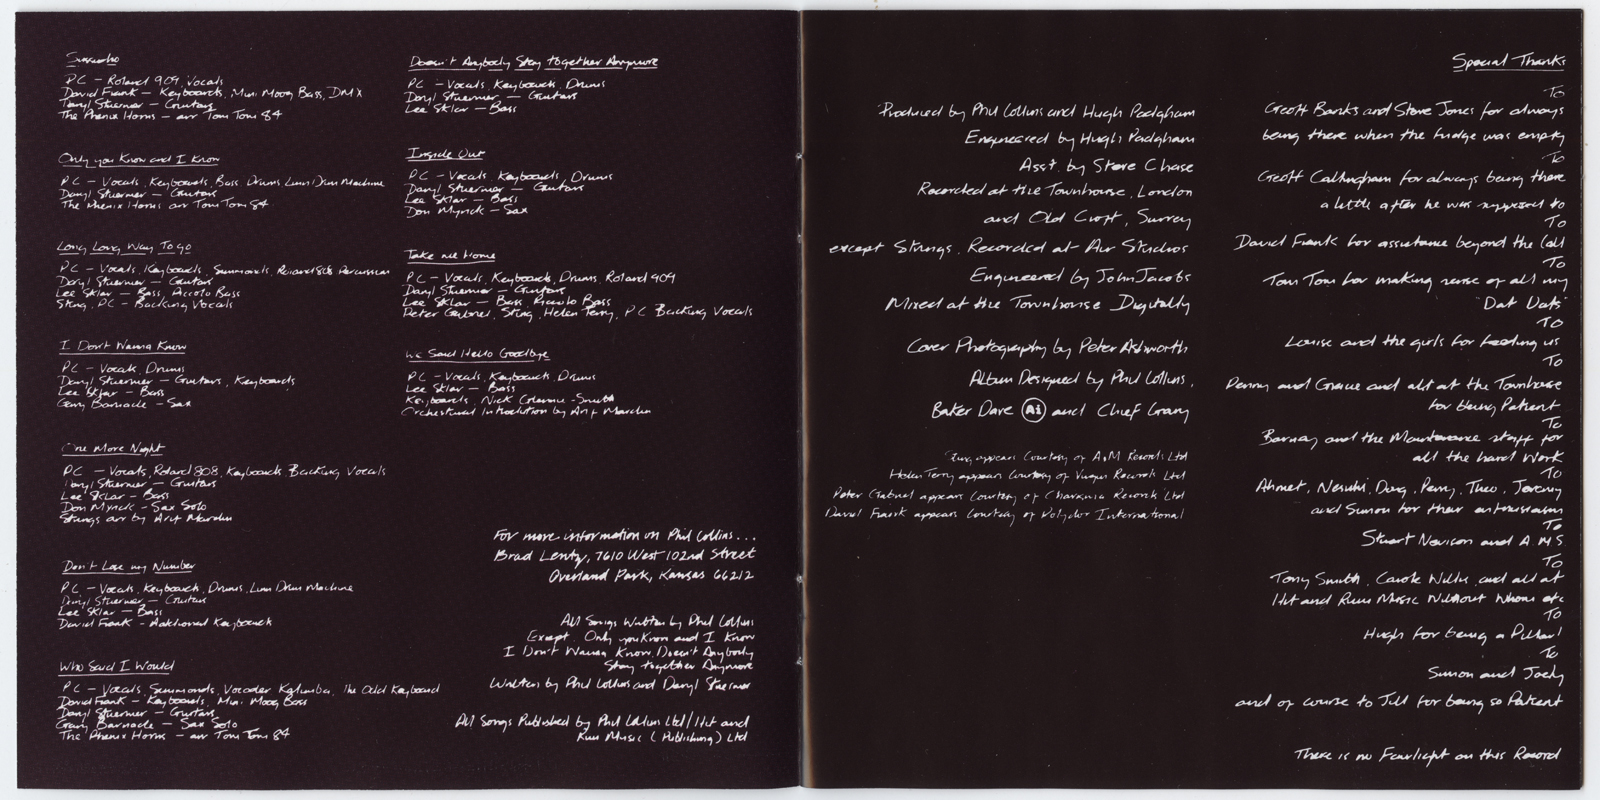 Sussudio
PC – Roland 909, Vocals
David Frank – Keyboards, Mini Moog Bass, DMX
Daryl Stuermer – Guitars
The Phenix Horns – arr Tom Tom 84
Only you Know and I Know
PC – Vocals, Keyboards, Bass, Drums, Linn Drum Machine
Daryl Stuermer – Guitars
The Phenix Horns arr Tom Tom 84
Long Long Way To go
PC – Vocals, Keyboards, Simmonds, Roland 808 Percussion
Daryl Stuermer – Guitars
Lee Sklar – Bass, Piccolo Bass
Sting, PC – Backing Vocals
I Don't Wanna Know
PC – Vocals, Drums
Daryl Stuermer – Guitars, Keyboards
Lee Sklar – Bass
Gary Barnacle – Sax
One More Night
PC – Vocals, Roland 808, Keyboards Backing Vocals
Daryl Stuermer – Guitars
Lee Sklar – Bass
Don Myrick – Sax Solo
Strings arr by Arif Mardin
Don't Lose my Number
PC – Vocals, Keyboards, Drums, Linn Drum Machine
Daryl Stuermer – Guitars
Lee Sklar – Bass
David Frank – Additional Keyboards
Who Said I Would
PC – Vocals, Simmonds, Vocoder Kalimba, The Odd Keyboard
David Frank – Keyboards, Mini Moog Bass
Daryl Stuermer – Guitars
Gary Barnacle – Sax Solo
The Phenix Horns – arr Tom Tom 84
Doesn't Anybody Stay together Anymore
PC – Vocals, Keyboards, Drums
Daryl Stuermer – Guitars
Lee Sklar – Bass
Inside Out
PC – Vocals, Keyboards, Drums
Daryl Stuermer – Guitars
Lee Sklar – Bass
Don Myrick – Sax
Take me Home
PC – Vocals, Keyboards, Drums, Roland 909
Daryl Stuermer – Guitars
Lee Sklar – Bass, Piccolo Bass
Peter Gabriel, Sting, Helen Terry, PC Backing Vocals
We Said Hello Goodbye
PC – Vocals, Keyboards, Drums
Lee Sklar – Bass
Keyboards, Nick Glennie-Smith
Orchestral Introduction by Arif Mardin
For more information on Phil Collins...
Brad Lentz, 7610 West 102nd Street
Overland Park, Kansas 66212
All Songs Written by Phil Collins
Except. Only you Know and I Know
I Don't Wanna Know, Doesn't Anybody
Stay together Anymore
Written by Phil Collins and Daryl Stuermer
All Songs Published by Phil Collins Ltd/Hit and
Run Music (Publishing) Ltd
Produced by Phil Collins and Hugh Padgham
Engineered by Hugh Padgham
Asst. by Steve Chase
Recorded at the Townhouse, London
and Old Croft, Surrey
except Strings. Recorded at Air Studios
Engineered by John Jacobs
Mixed at the Townhouse Digitally
Cover Photography by Peter Ashworth
Album Designed by Phil Collins,
Baker Dave Ai and Chief Grany
Sting appears Courtesy of A&M Records Ltd
Helen Terry appears Courtesy of Virgin Records Ltd
Peter Gabriel appears Courtesy of Charisma Records Ltd
David Frank appears Courtesy of Polydor International
Special Thanks
To
Geoff Banks and Steve Jones for always
being there when the fridge was empty
To
Geoff Callingham for always being there
a little after he was supposed to
To
David Frank for assistance beyond the Call
To
Tom Tom for making sense of all my
'Dat Dats'
To
Louise and the girls for feeding us
To
Penny and Gracie and all at the Townhouse
for being Patient
To
Barney and the Maintenance staff for
all the hard Work
To
Ahmet, Nesuhi, Doug, Perry, Theo, Jeremy
and Simon for their enthusiasm
To
Stuart Nevison and AMS
To
Tony Smith, Carole Willis and all at
Hit and Run Music Without Whom etc
To
Hugh for being a Pillar!
To
Simon and Jody
and of course to Jill for being so Patient
There is no Fairlight on this Record